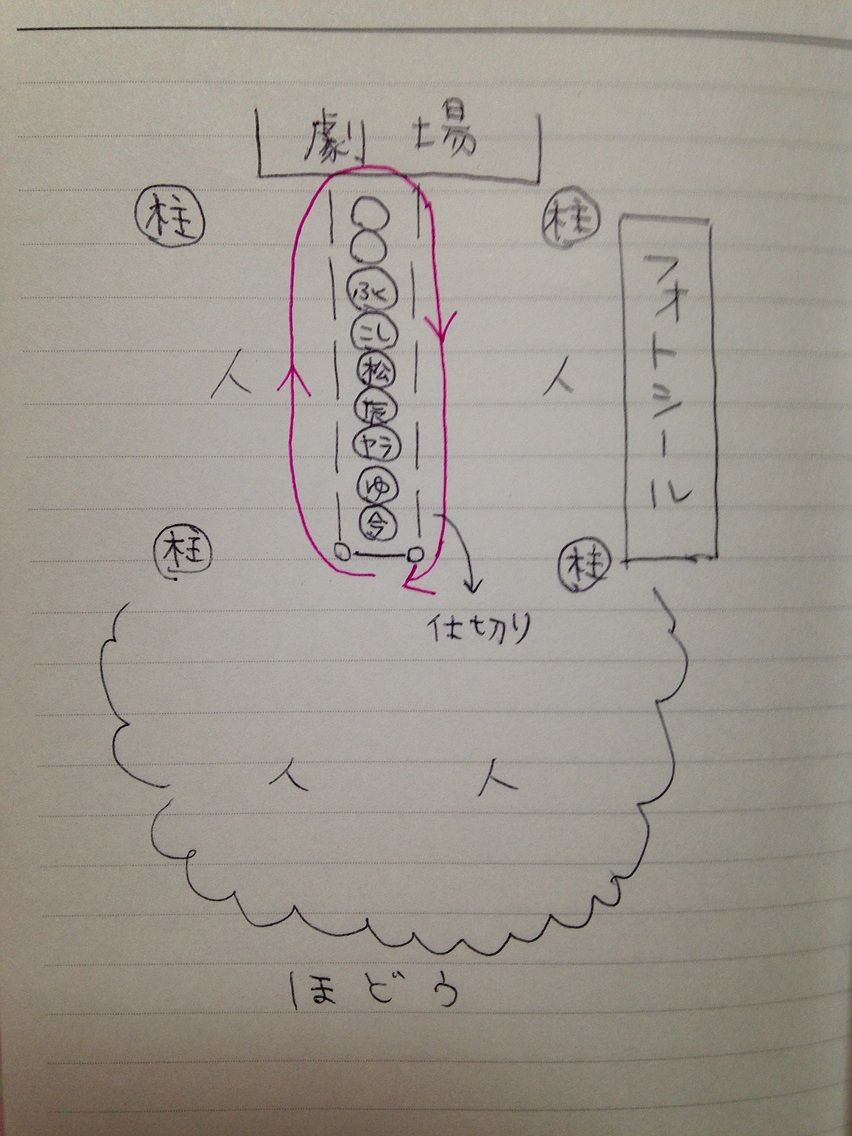 劇場
柱
柱
ふく
こし
松
辰
ヤラ
ゆ
今
人
人
フォトシール
柱
柱
仕切り
人
人
ほどう